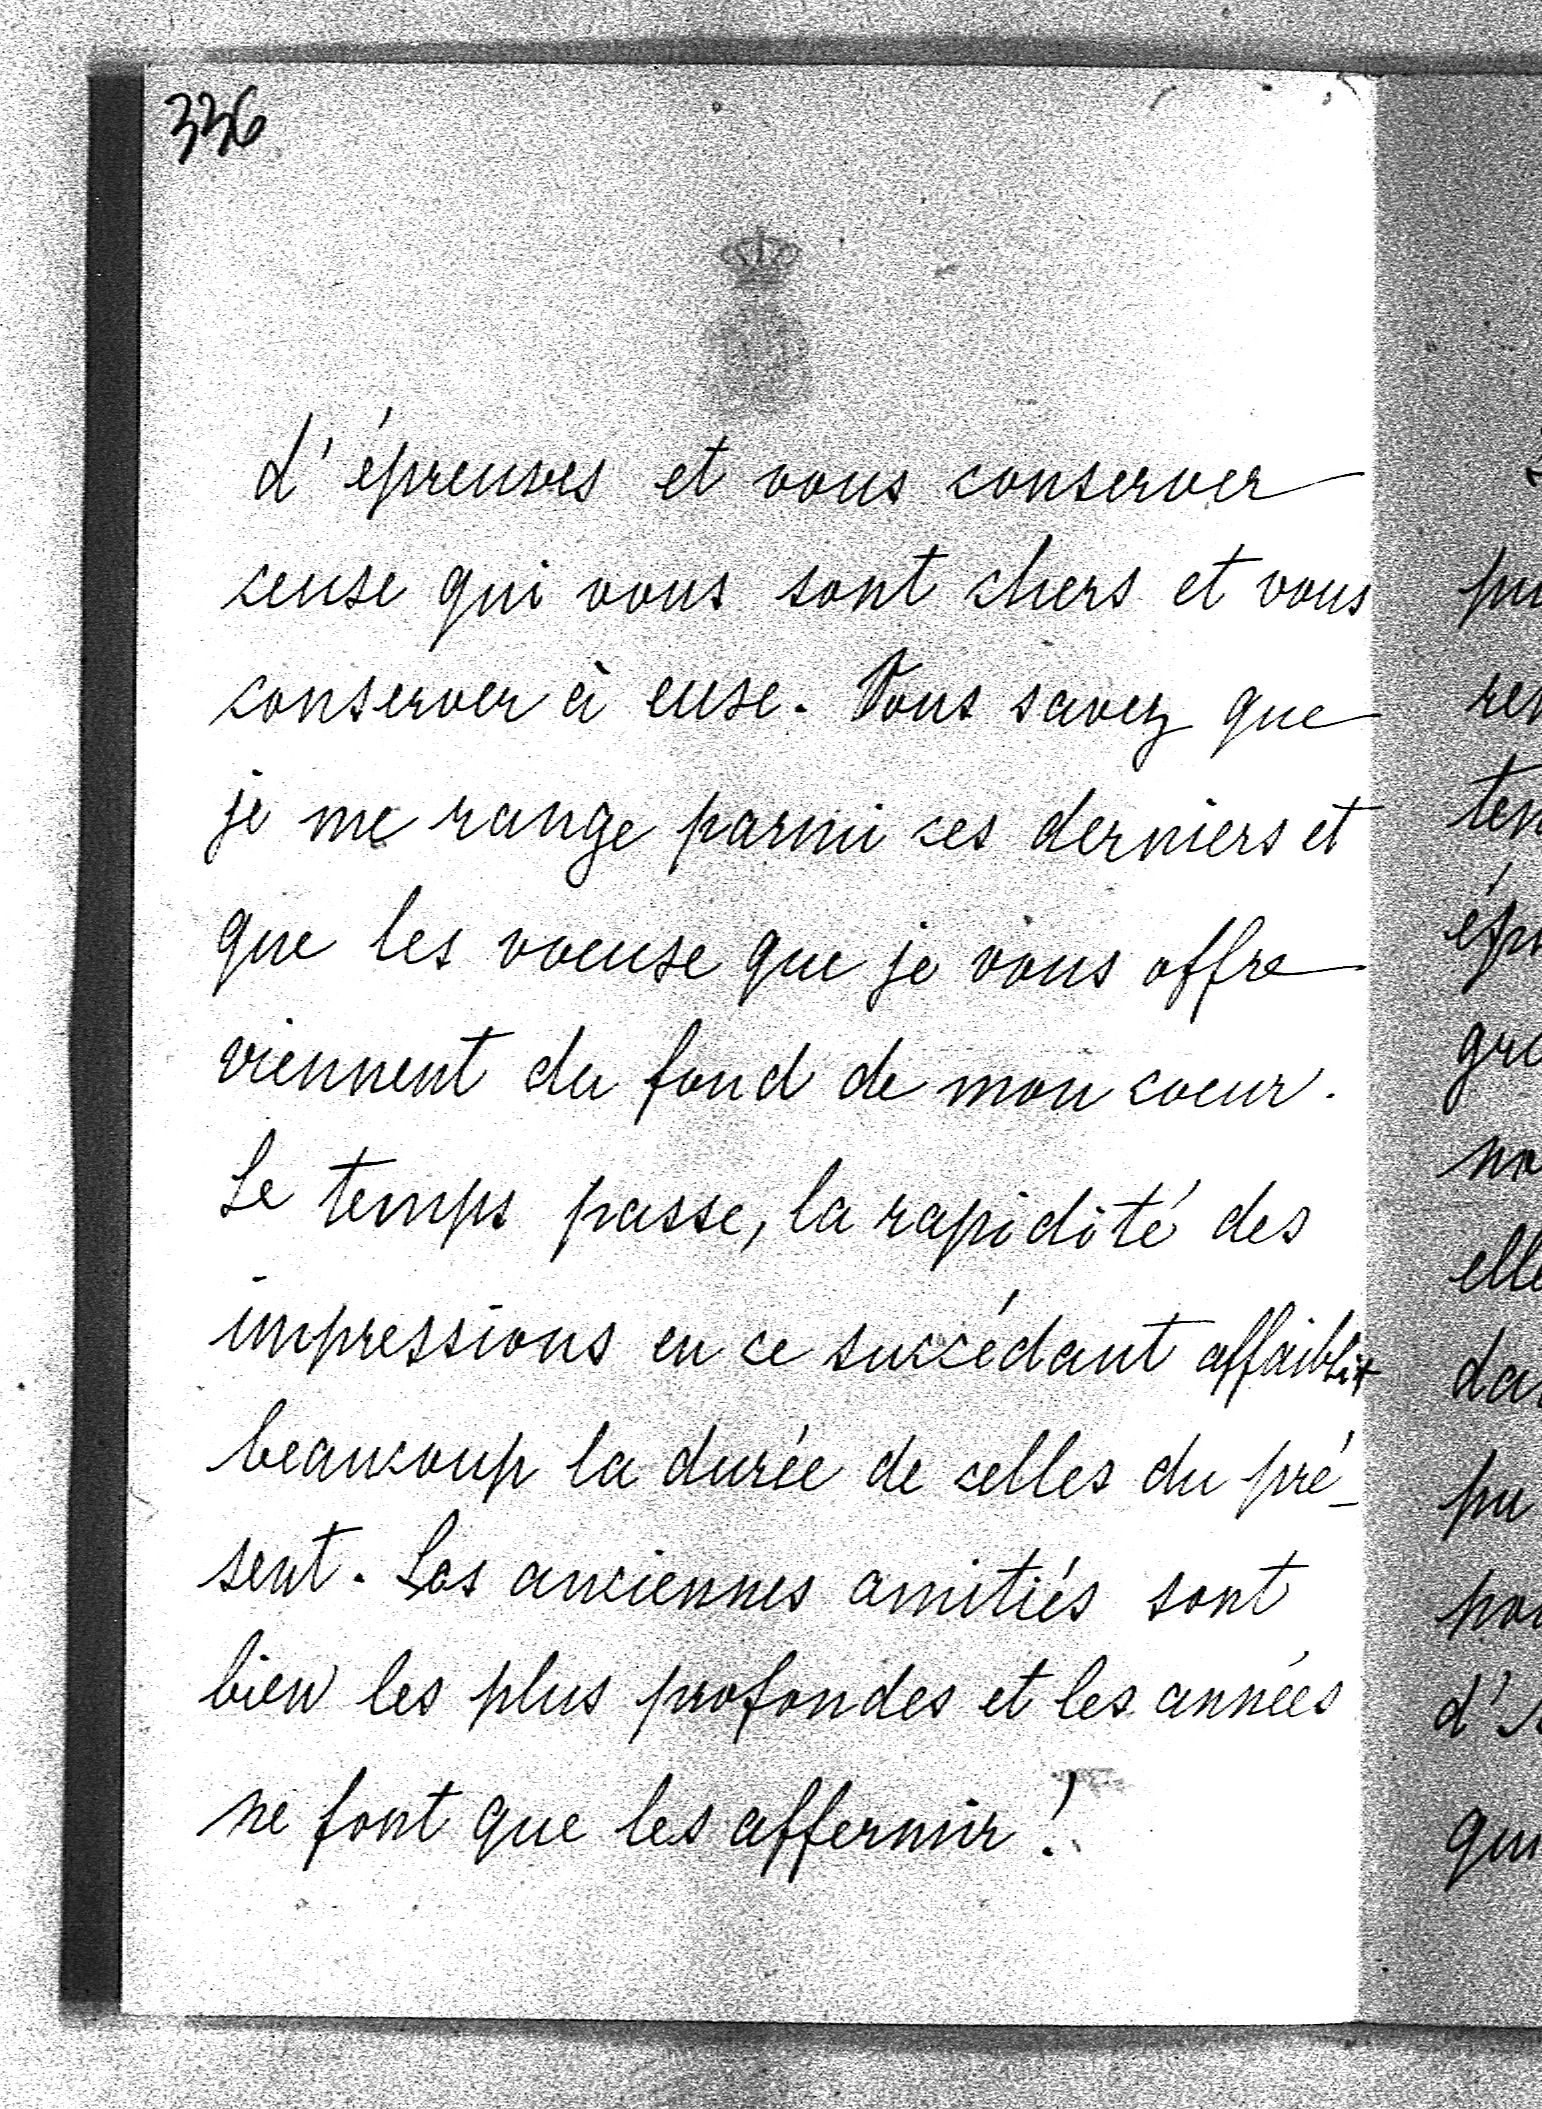 336
d'épreuves et vous conserver
ceux qui vous sont chers et vous
conserver à eux. Vous savez que
je me range parmi ces derniers et
que les voeux que je vous offre
viennent du fond de mon coeur.
Le temps passe, la rapidité des
impressions en ce succédant affaiblit
beaucoup la durée de celles du pré-
sent. Les anciennes amitiés sont
bien les plus profondes et les années
ne font que les affermir!